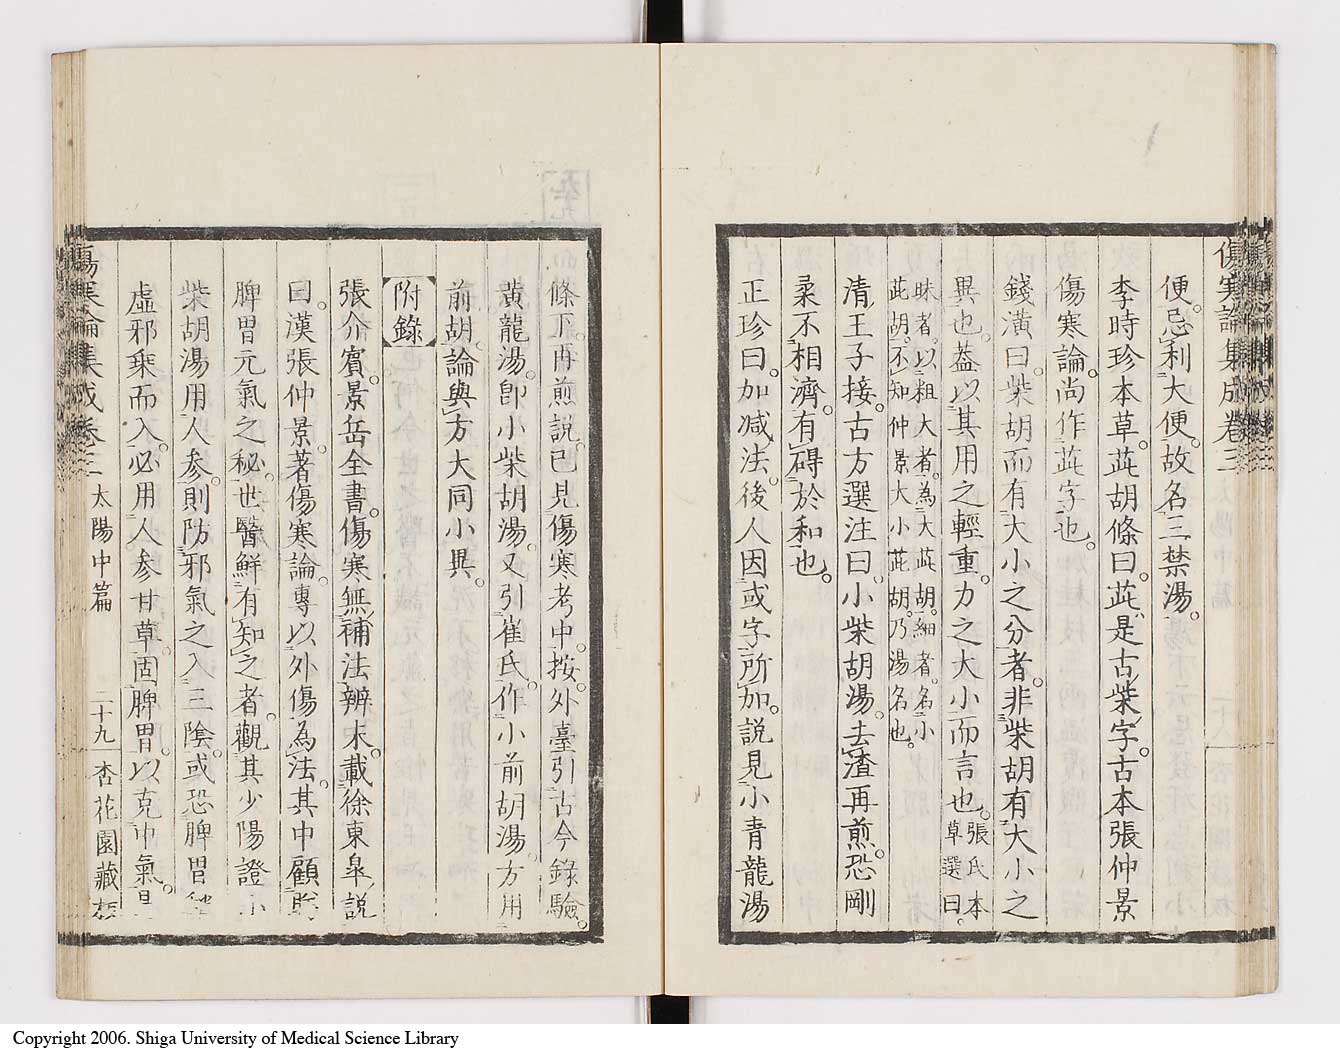 傷寒論集成卷三
便。忌利大便。故名三禁湯。
李時珍本草。茈胡條曰。茈。是古柴字。古本張仲景
傷寒論。尚作茈字也。
錢潢曰。柴胡而有大小之分者。非柴胡有大小之
異也。葢以其用之輕重。力之大小而言也。張氏本草選曰。
昧者。以粗大者。為大茈胡。細者。名小茈胡。不知仲景大小茈胡。乃湯名也。
清王子接。古方選注曰。小柴胡湯。去渣再煎。恐剛
柔不相濟。有碍於和也。
正珍曰。加減法。後人因或字所加。說見小青龍湯
條下。再煎說。已見傷寒考中。按。外臺引古今錄驗。
黃龍湯。卽小柴胡湯。又引崔氏。作小前胡湯。方用
前胡。論與方大同小異。
附錄
張介賓。景岳全書。傷寒無補法辨末。載徐東皐說
曰。漢張仲景。著傷寒論。專以外傷為法。其中顧
脾胃元氣之秘。世醫鮮有知之者。觀其少陽證小
柴胡湯用人參。則防邪氣之入三陰。或恐脾胃
虛邪乘而入。必用人參甘草。固脾胃。以克中氣。
傷寒論集成卷三 太陽中篇 二十九 杏花園藏板
Copyright 2006. Shiga University of Medical Science Library